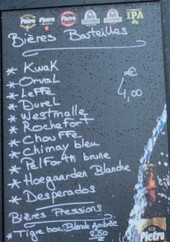 Pietra
Pietra
IPA
Bières Bouteilles
* Kwak
* Orval
* Leffe
* Duvel
* Westmalle
* Rochefort
* Chouffe
* Chimay bleu
* Pelfort brune
* Hoegaarden Blanche
* Desperados
€
4,00
Bières Pressions
* Tigre bock Blonde Ambrée
2.50
Pietra